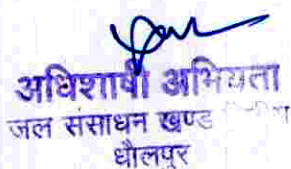 अधिशाषी अभियंता
जल संसाधन खण्ड
धौलपुर